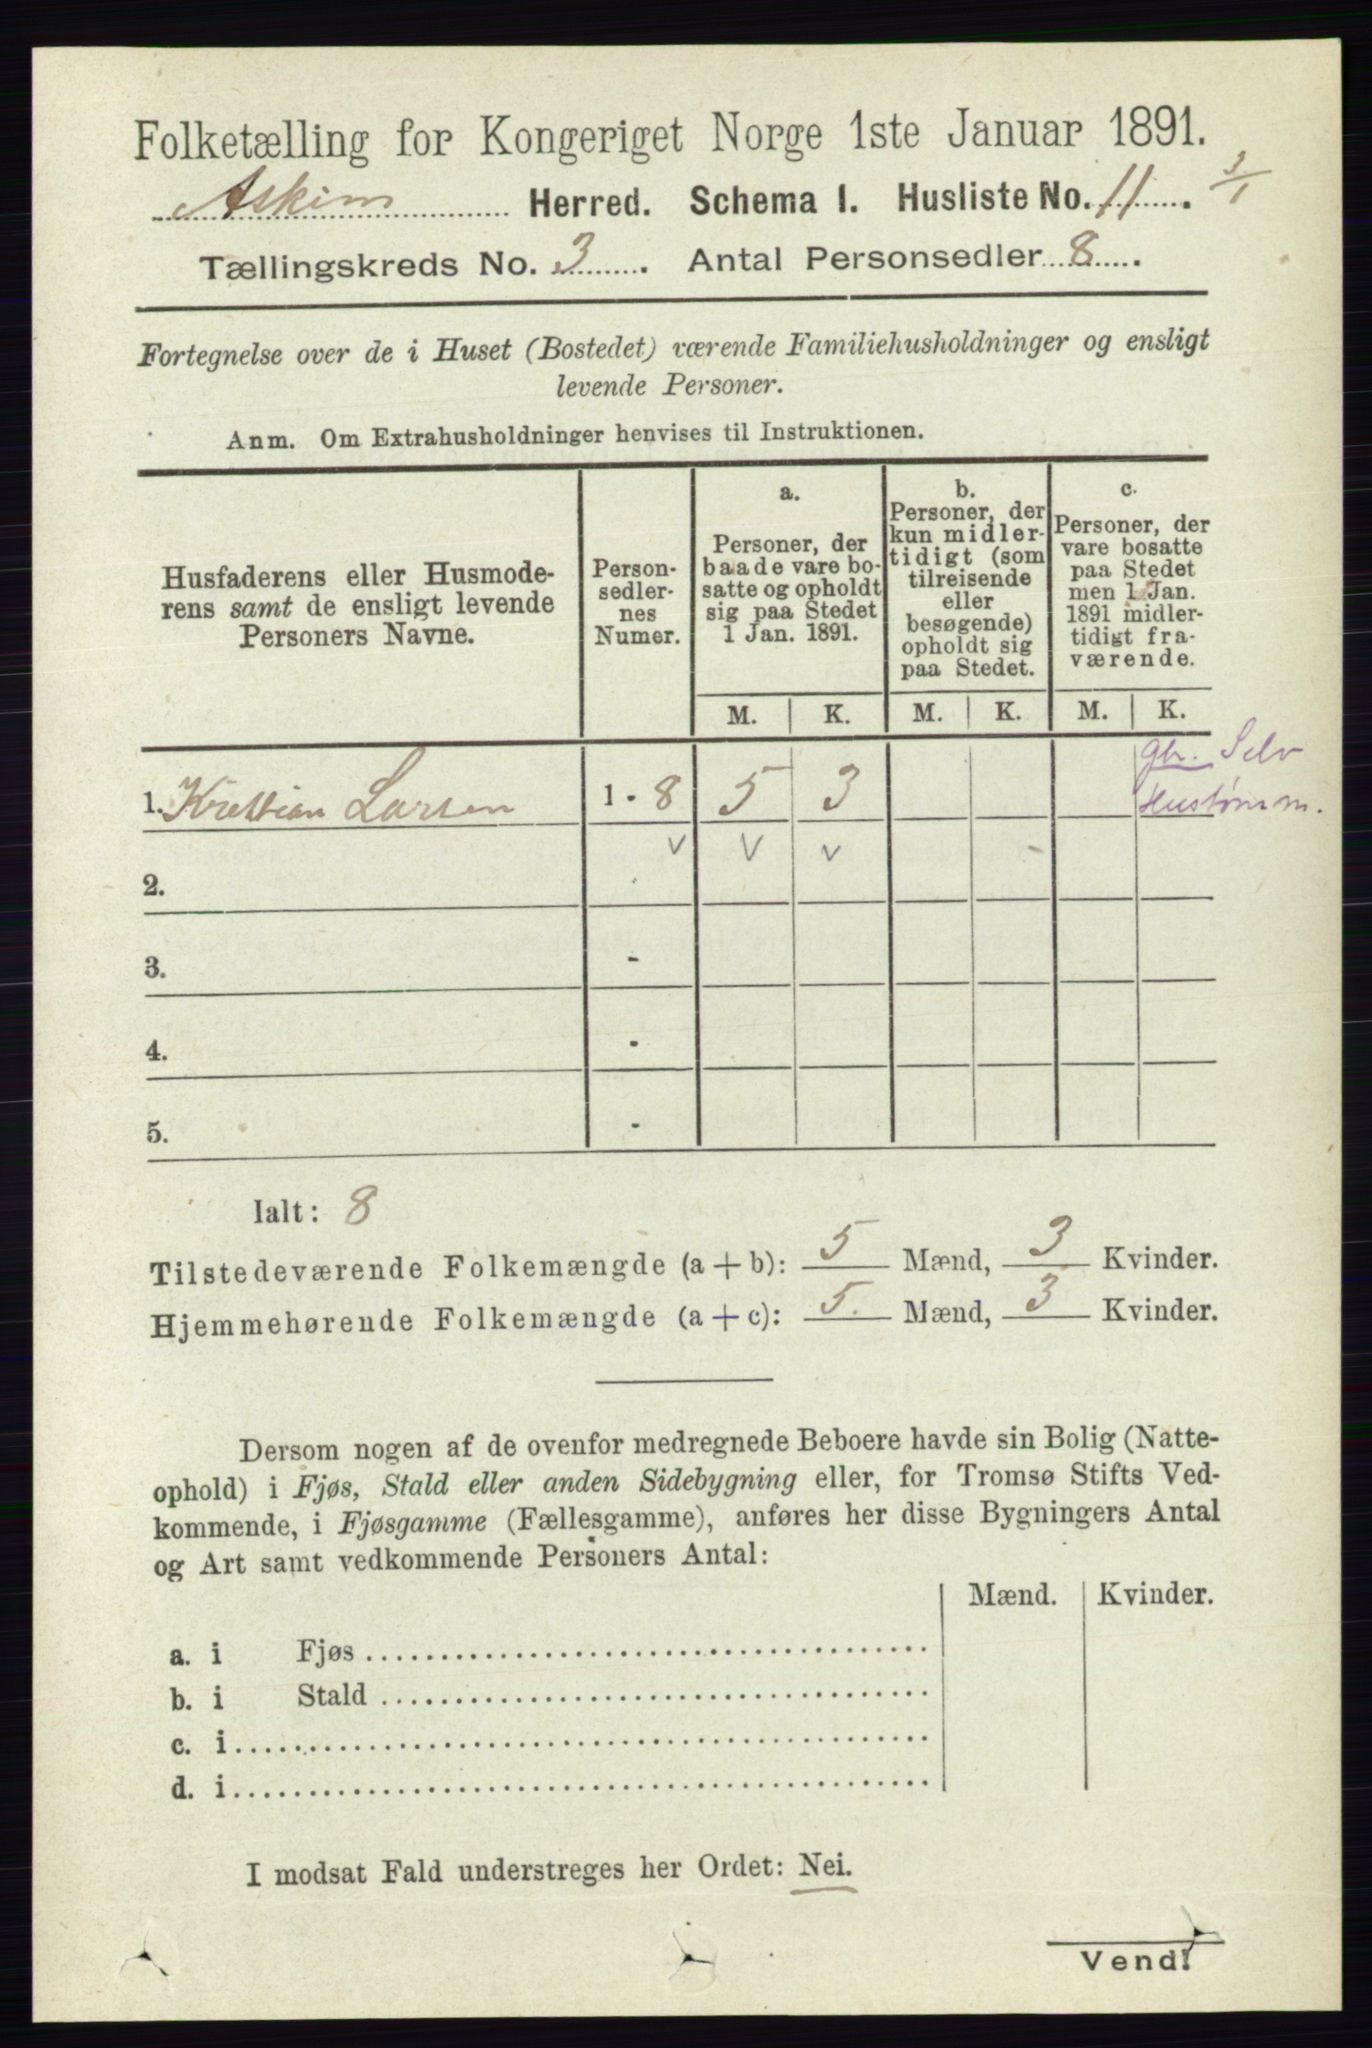 Folketælling for Kongeriget Norge 1ste Januar 1891.
Askim Herred. Schema 1. Husliste No. 11. 3/1
Tællingskreds No. 3. Antal Personsedler 8.
Fortegnelse over de i Huset (Bostedet) værende Familiehusholdninger og ensligt
levende Personer.
Anm. Om Extrahusholdninger henvises til Instruktionen.
Husfaderens eller Husmode-
rens samt de ensligt levende
Personers Navne.
Person-
sedler-
nes
Numer.
a.
Personer, der
baade vare bo-
satte og opholdt
sig paa Stedet
1 Jan. 1891.
b.
Personer, der
kun midler-
tidigt (som
tilreisende
eller
besøgende)
opholdt sig
paa Stedet.
c.
Personer, der
vare bosatte
paa Stedet
men 1 Jan.
1891 midler-
tidigt fra-
værende.
M. K. M. K. M. K.
gbr. Selv
1. Kristian Larsen 1 - 8 5 3 Hustømm.
v v v
2. -
3. -
4. -
5. -
Ialt: 8
Tilstedeværende Folkemængde (a + b): 5 Mænd, 3 Kvinder.
Hjemmehørende Folkemængde (a + c): 5. Mænd, 3 Kvinder.
Dersom nogen af de ovenfor medregnede Beboere havde sin Bolig (Natte-
ophold) i Fjøs, Stald eller anden Sidebygning eller, for Tromsø Stifts Ved-
kommende, i Fjøsgamme (Fællesgamme), anføres her disse Bygningers Antal
og Art samt vedkommende Personers Antal:
Mænd. Kvinder.
a. i Fjøs
b. i Stald
c. i
d. i
I modsat Fald understreges her Ordet: Nei.
Vend!